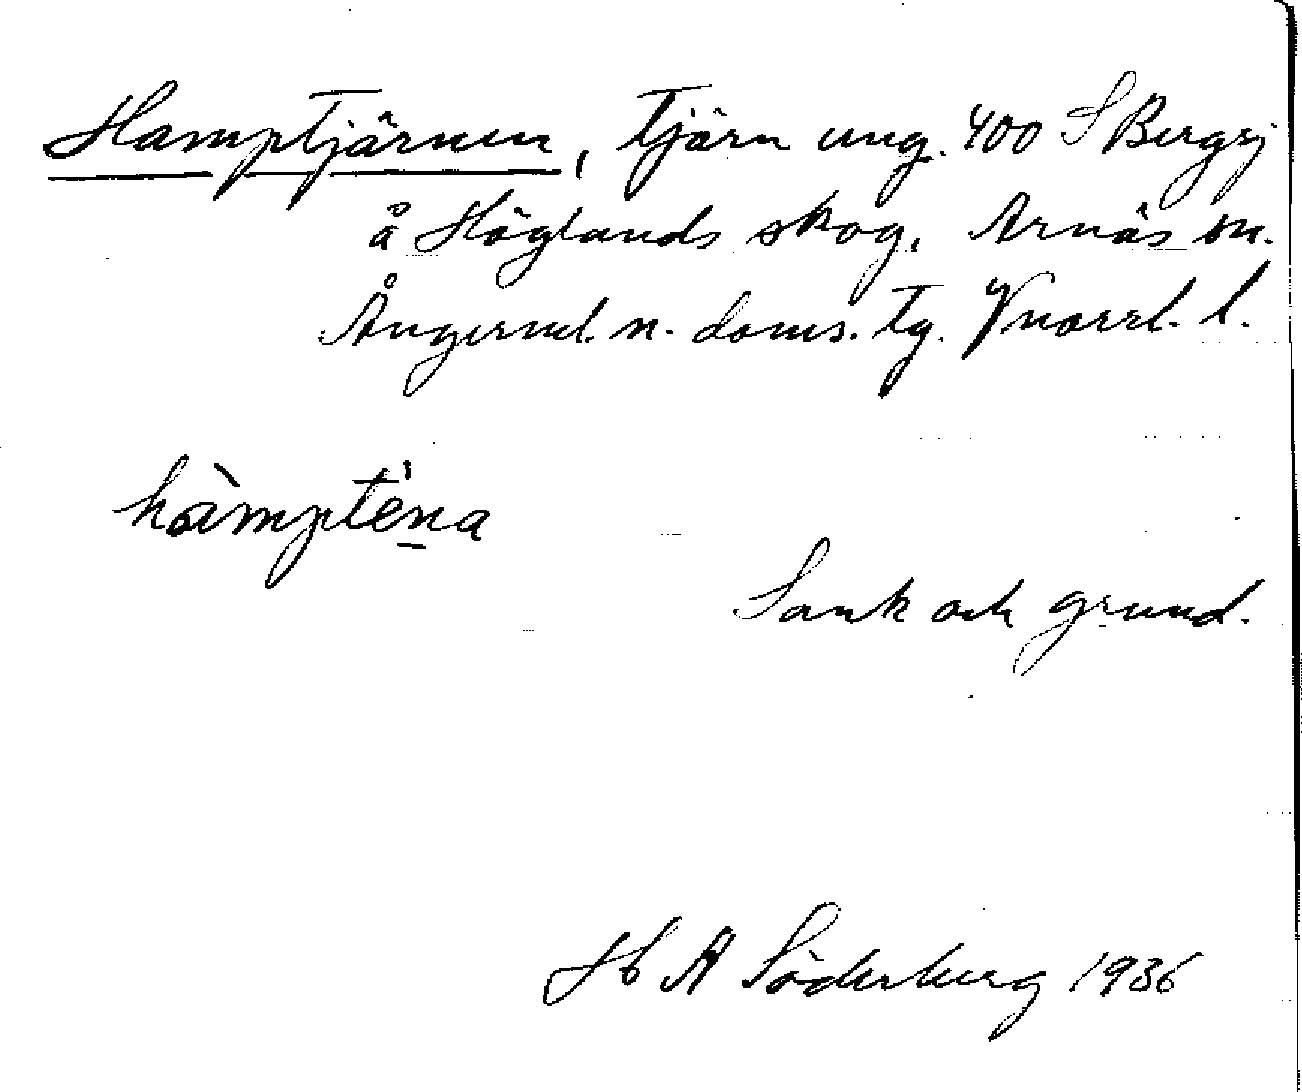 Hamptjärnen, tjärn ung. 400 S Bergsj
å Höglands skog, Arnäs sn.
Ångerml. n. doms. tg. Vnorrl. l.
hàmpte̍na
Sank och grund.
Hb A Söderberg 1936